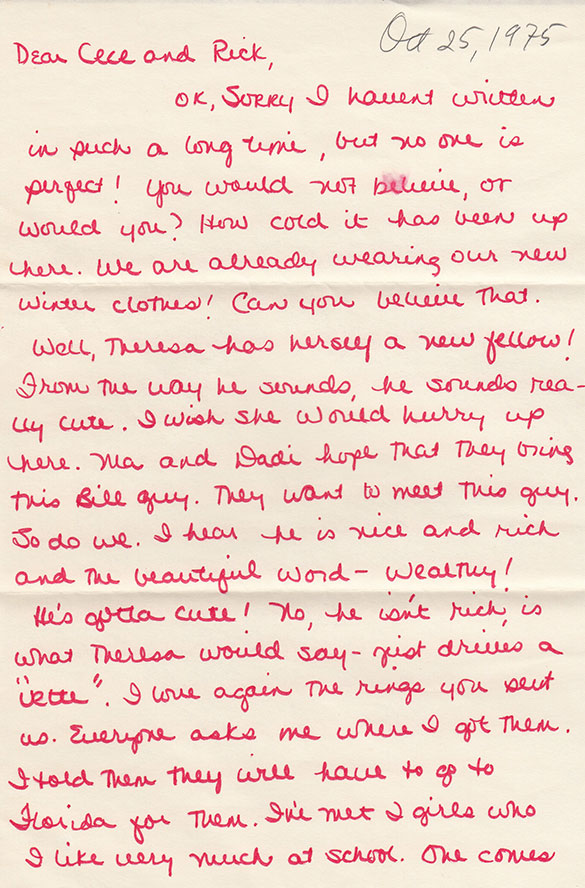 Oct 25, 1975
Dear Cece and Rick,
OK, Sorry I havent written
in such a long time, but no one is
perfect! You would not believe, or
would you? How cold it has been up
here. We are already wearing our new
winter clothes! Can you believe that.
Well, Theresa has hersely a new fellow!
From the way he sounds, he sounds rea-
lly cute. I wish she would hurry up
here. Ma and Dadi hope that they bring
this Bill guy. They want to meet this guy.
So do we. I hear he is nice and rich
and the beautiful word - wealthy!
He's gotta cute! No, he isn't rich, is
what Theresa would say - just drives a
"vette". I love again the rings you sent
us. Everyone asks me where I got them.
I told them they will have to go to
Florida for them. I've met 2 girls who
I like very much at school. One comes